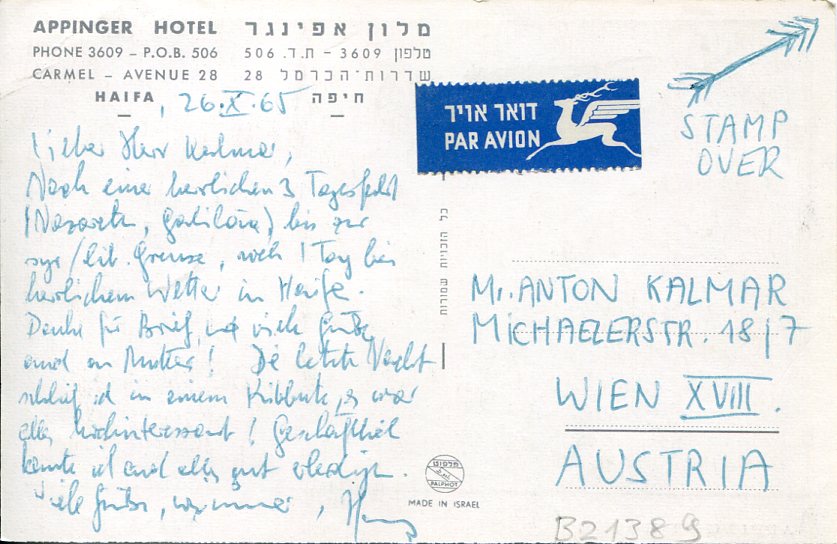 APPINGER HOTEL מלון אפינגר
PHONE 3609 – P.O.B. 506 טלפון 3609 – ת.ד. 506
CARMEL – AVENUE 28 שדרות-הכרמל 28
HAIFA, 26.X.65 חיפה
Lieber Herr Kalmar,
Nach einer herrlichen 3 Tagesfahrt
(Nazareth, Galiläa) bis zur
syr/lib. Grenze, noch 1 Tag bei
herrlichem Wetter in Haifa.
Danke für Brief, und viele Grüße
auch an Mutter! Die letzte Nacht
schlief ich in einem Kibbutz, es war
alles hochinteressant! Geschäftlich
konnte ich auch alles gut erledigen.
Viele Grüße, wie immer,
דואר אויר
PAR AVION
STAMP
OVER
כל הזכויות שמורות
Mr. ANTON KALMAR
MICHAELERSTR. 18/7
WIEN XVIII.
AUSTRIA
פלפוט
PALPHOT
MADE IN ISRAEL
B21389